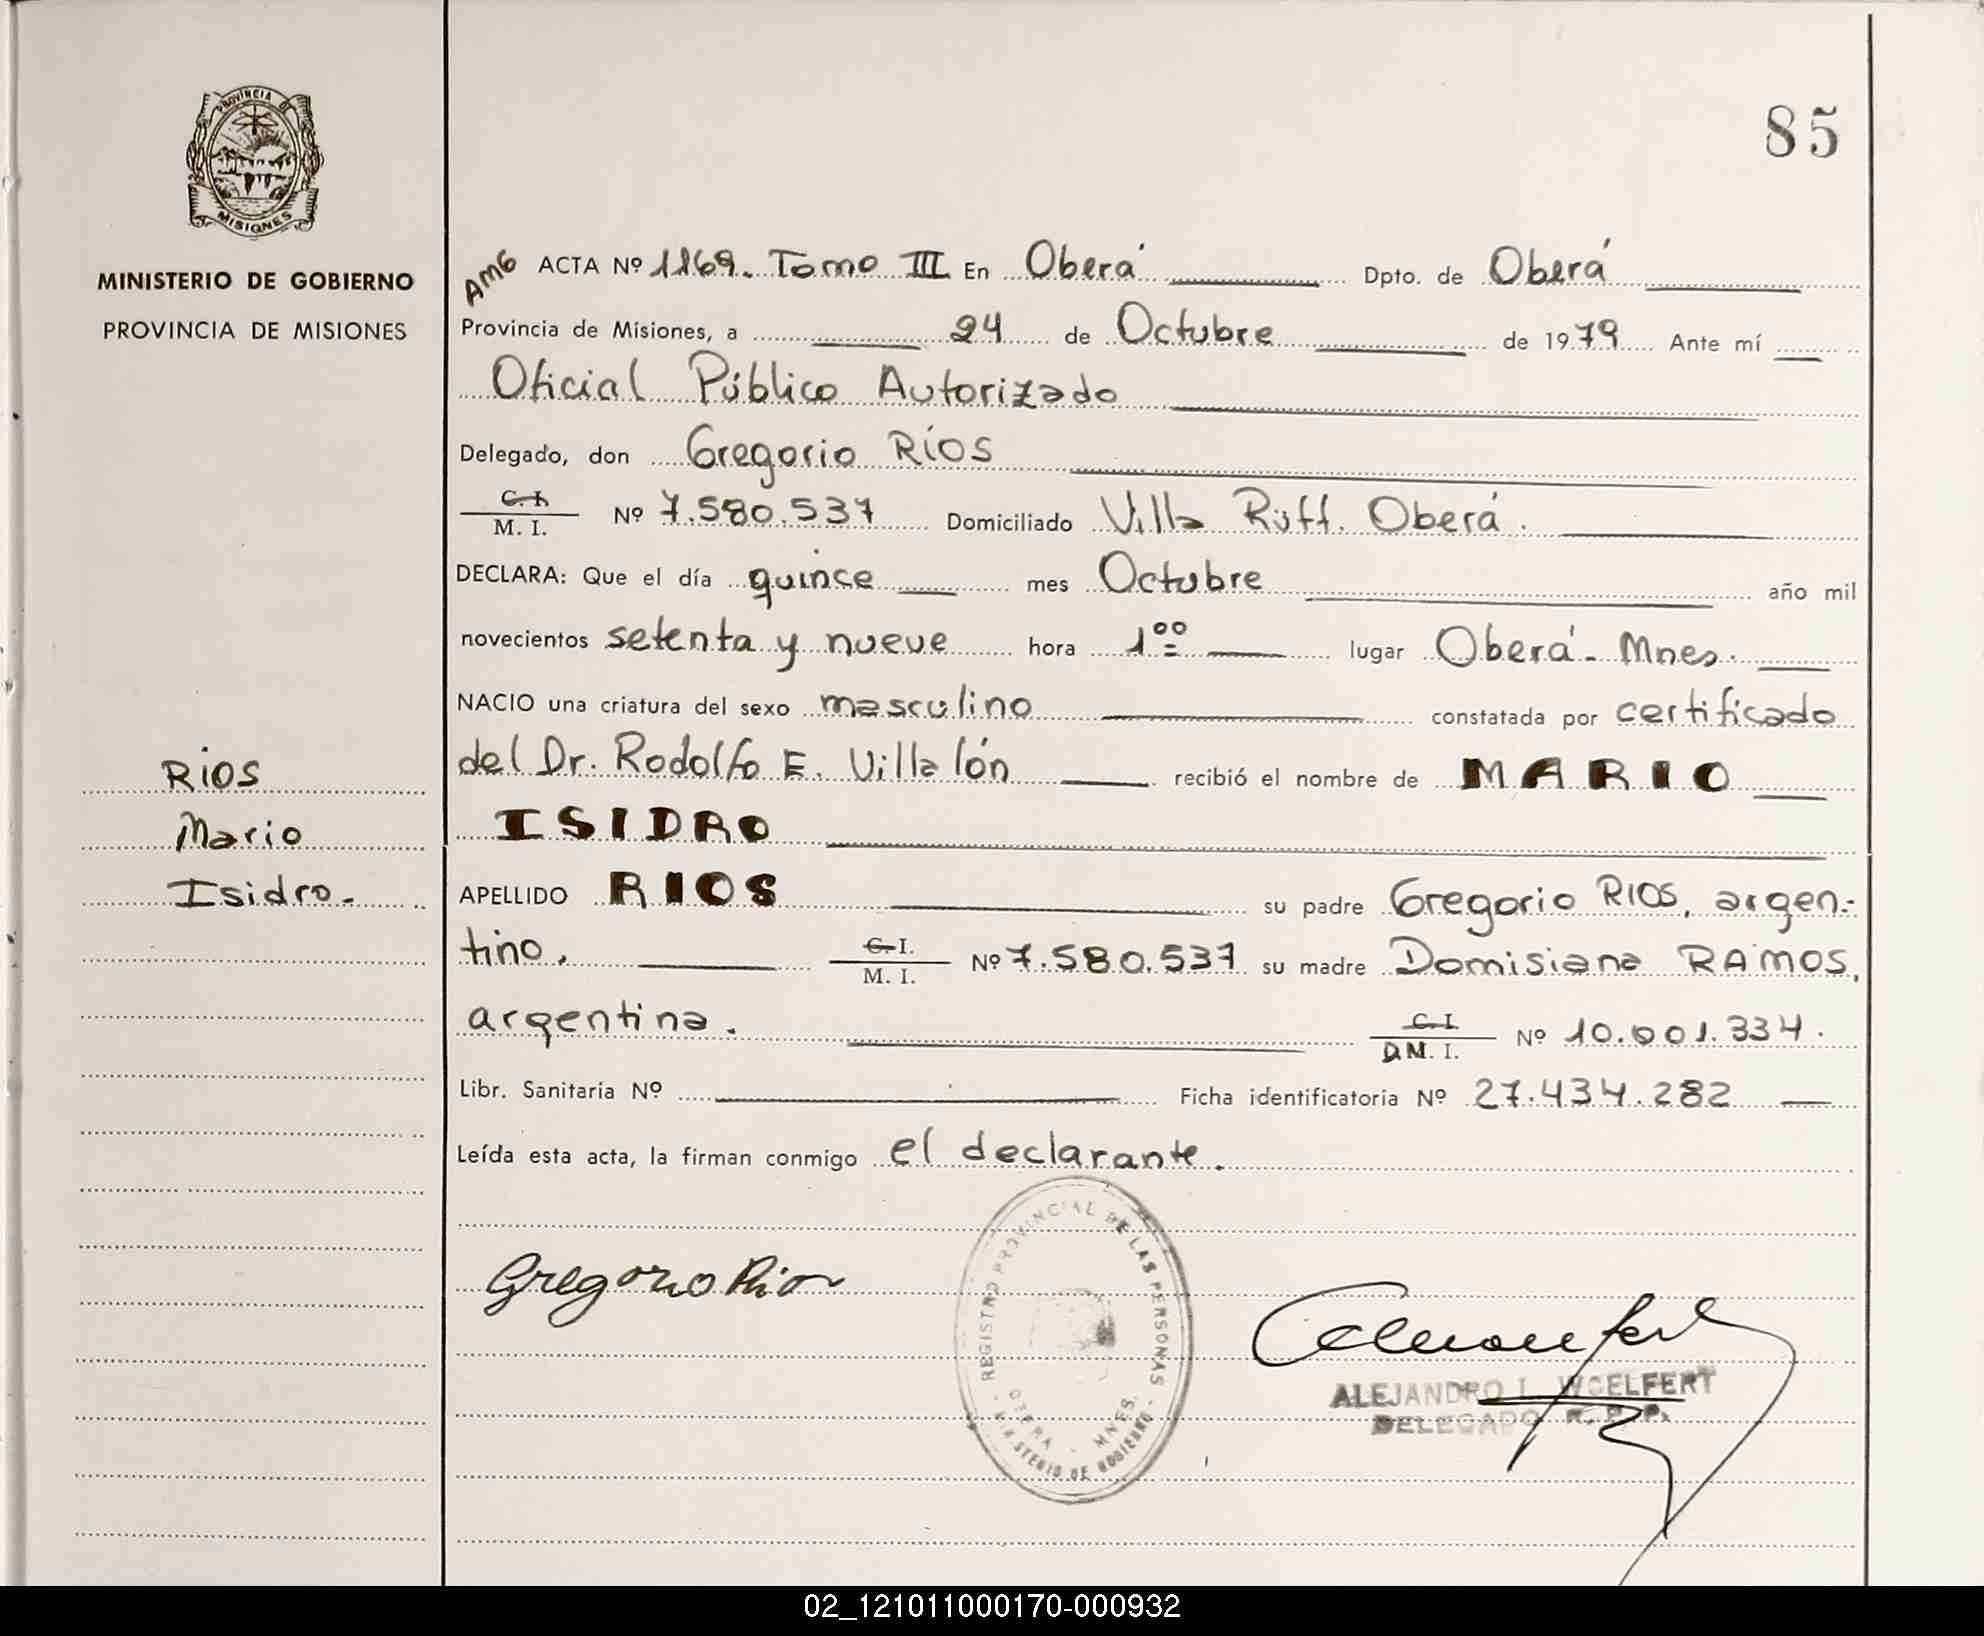 85
PROVINCIA DE
MISIONES
MINISTERIO DE GOBIERNO
PROVINCIA DE MISIONES
Rios
Mario
Isidro.-
AMG ACTA Nº 1169. Tomo III En Oberá Dpto. de Oberá
Provincia de Misiones, a 24 de Octubre de 1979 Ante mí
Oficial Público Autorizado
Delegado, don Gregorio Ríos
C. I.
M. I. Nº 7.580.537 Domiciliado Villa Ruff. Oberá.
DECLARA: Que el día quince mes Octubre año mil
novecientos setenta y nueve hora 1⁰⁰ lugar Oberá- Mnes.
NACIO una criatura del sexo masculino constatada por certificado
del Dr. Rodolfo E. Villalón recibió el nombre de MARIO
ISIDRO
APELLIDO RIOS su padre Gregorio RIOS, argen-
tino, C. I. M. I. Nº 7.580.537 su madre Domisiana RAMOS,
argentina. C. I. D.M. I. Nº 10.001.334.
Libr. Sanitaria Nº Ficha identificatoria Nº 27.434.282
Leída esta acta, la firman conmigo el declarante.
Gregorio Rios
REGISTRO PROVINCIAL DE LAS PERSONAS
OBERA - MNES.
MINISTERIO DE GOBIERNO
ALEJANDRO L. WOELFERT
DELEGADO R. P. P.
02_121011000170-000932